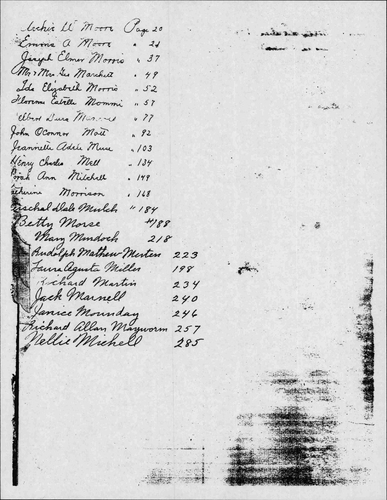 Archie W Moore Page 20
Emma A Moore " 21
Joseph Elmer Morris " 37
Mr & Mrs. Geo Marchett " 49
Ida Elizabeth Morris " 52
Florence Estelle Mommi " 57
Elber Dura " 77
John O'Connor Mott " 92
Jeannette Adele Muse " 103
Henry Charles Mell " 134
Sarah Ann Mitchell " 149
Catherine Morrison " 168
Herschel Dale Mulch " 184
Betty Morse " 188
Mary Murdock 218
Rudolph Mathew Merten 223
Laura Agusta Miller 198
Richard Martin 234
Jack Marnell 240
Janice Mounday 246
Richard Allan Mayworm 257
Nellie Michell 285